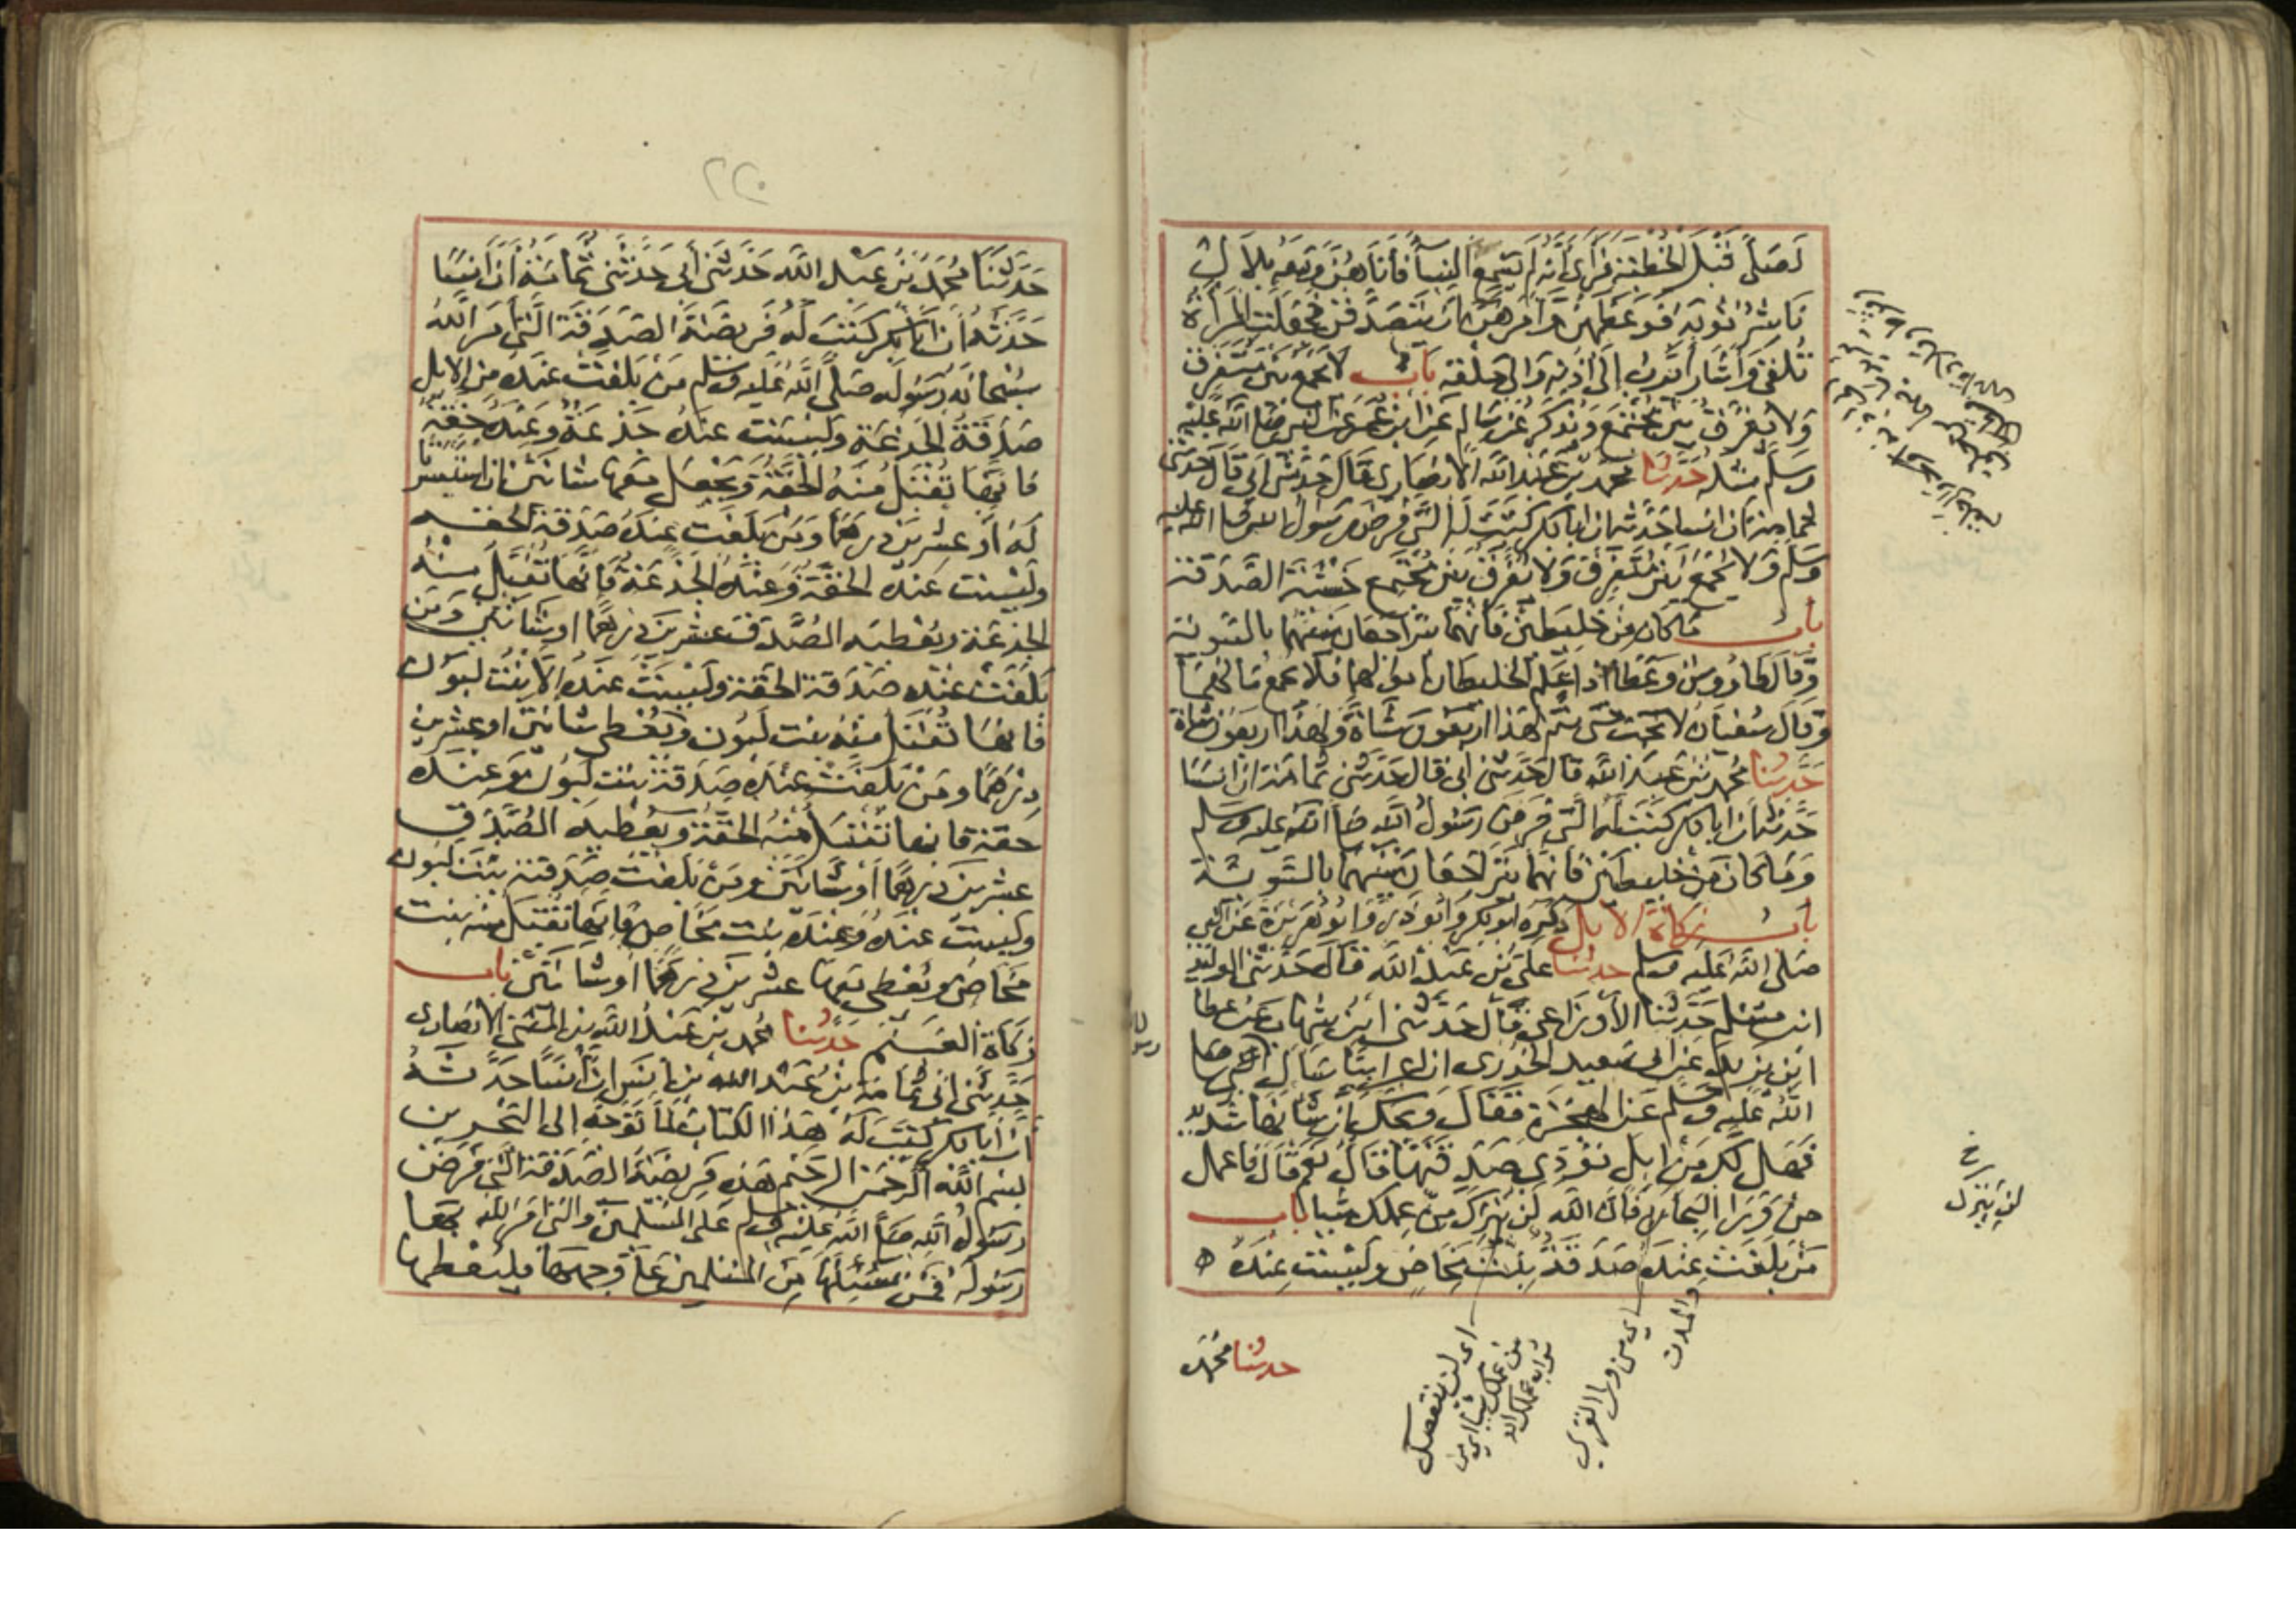 لصلى قبل الخطبة فرأى أنه لم يسمع النساء فأتاهن ومعه بلال
ناشر ثوبه فوعظهن وأمرهن أن يتصدقن فجعلت المرأة
تلقي وأشار أيوب إلى أذنه وإلى حلقه باب لا يجمع بين متفرق
ولا يفرق بين مجتمع ويذكر عن سالم عن ابن عمر عن النبي صلى الله عليه
وسلم مثله حدثنا محمد بن عبد الله الأنصاري قال حدثني أبي قال حدثني
ثمامة أن أنسا حدثه أن أبا بكر كتب له التي فرض رسول الله صلى الله عليه
وسلم ولا يجمع بين متفرق ولا يفرق بين مجتمع خشية الصدقة
باب ما كان من خليطين فإنهما يتراجعان بينهما بالسوية
وقال طاووس وعطاء إذا علم الخليطان أموالهما فلا يجمع مالهما
وقال سفيان لا يجب حتى يتم لهذا أربعون شاة ولهذا أربعون شاة
حدثنا محمد بن عبد الله قال حدثني أبي قال حدثني ثمامة أن أنسا
حدثه أن أبا بكر كتب له التي فرض رسول الله صلى الله عليه وسلم
وما كان من خليطين فإنهما يتراجعان بينهما بالسوية
باب زكاة الإبل ذكره أبو بكر وأبو ذر وأبو هريرة عن النبي
صلى الله عليه وسلم حدثنا علي بن عبد الله قال حدثني الوليد
ابن مسلم حدثنا الأوزاعي قال حدثني ابن شهاب عن عطا
ابن يزيد عن أبي سعيد الخدري أن أعرابيا سأل النبي صلى
الله عليه وسلم عن الهجرة فقال ويحك إن شأنها شديد
فهل لك من إبل تؤدي صدقتها قال نعم قال فاعمل
من وراء البحار فإن الله لن يترك من عملك شيئا باب
من بلغت عنده صدقة بنت مخاض وليست عنده
حدثنا محمد
اى لن ينقصك
من عملك شيئا اى من
ثواب عملك
اى من وراء القرى
والمدن
لن يترك
حدثنا محمد بن عبد الله حدثني أبي حدثني ثمامة أن أنسا
حدثه أن أبا بكر كتب له فريضة الصدقة التي أمر الله
سبحانه رسوله صلى الله عليه وسلم من بلغت عنده من الإبل
صدقة الجذعة وليست عنده جذعة وعنده حقة
فإنها تقبل منه الحقة ويجعل معها شاتين إن استيسرتا
له أو عشرين درهما ومن بلغت عنده صدقة الحقة
وليست عنده الحقة وعنده الجذعة فإنها تقبل منه
الجذعة ويعطيه المصدق عشرين درهما أو شاتين ومن
بلغت عنده صدقة الحقة وليست عنده إلا بنت لبون
فإنها تقبل منه بنت لبون ويعطي شاتين أو عشرين
درهما ومن بلغت عنده صدقة بنت لبون وعنده
حقة فإنها تقبل منه الحقة ويعطيه المصدق
عشرين درهما أو شاتين ومن بلغت صدقته بنت لبون
وليست عنده وعنده بنت مخاض فإنها تقبل منه بنت
مخاض ويعطي معها عشرين درهما أو شاتين باب
زكاة الغنم حدثنا محمد بن عبد الله بن المثنى الأنصاري
حدثني أبي ثمامة بن عبد الله بن أنس أن أنسا حدثه
أن أبا بكر كتب له هذا الكتاب لما توجه إلى البحرين
بسم الله الرحمن الرحيم هذه فريضة الصدقة التي فرض
رسول الله صلى الله عليه وسلم على المسلمين والتي أمر الله بها
رسوله فمن سئلها من المسلمين على وجهها فليعطها